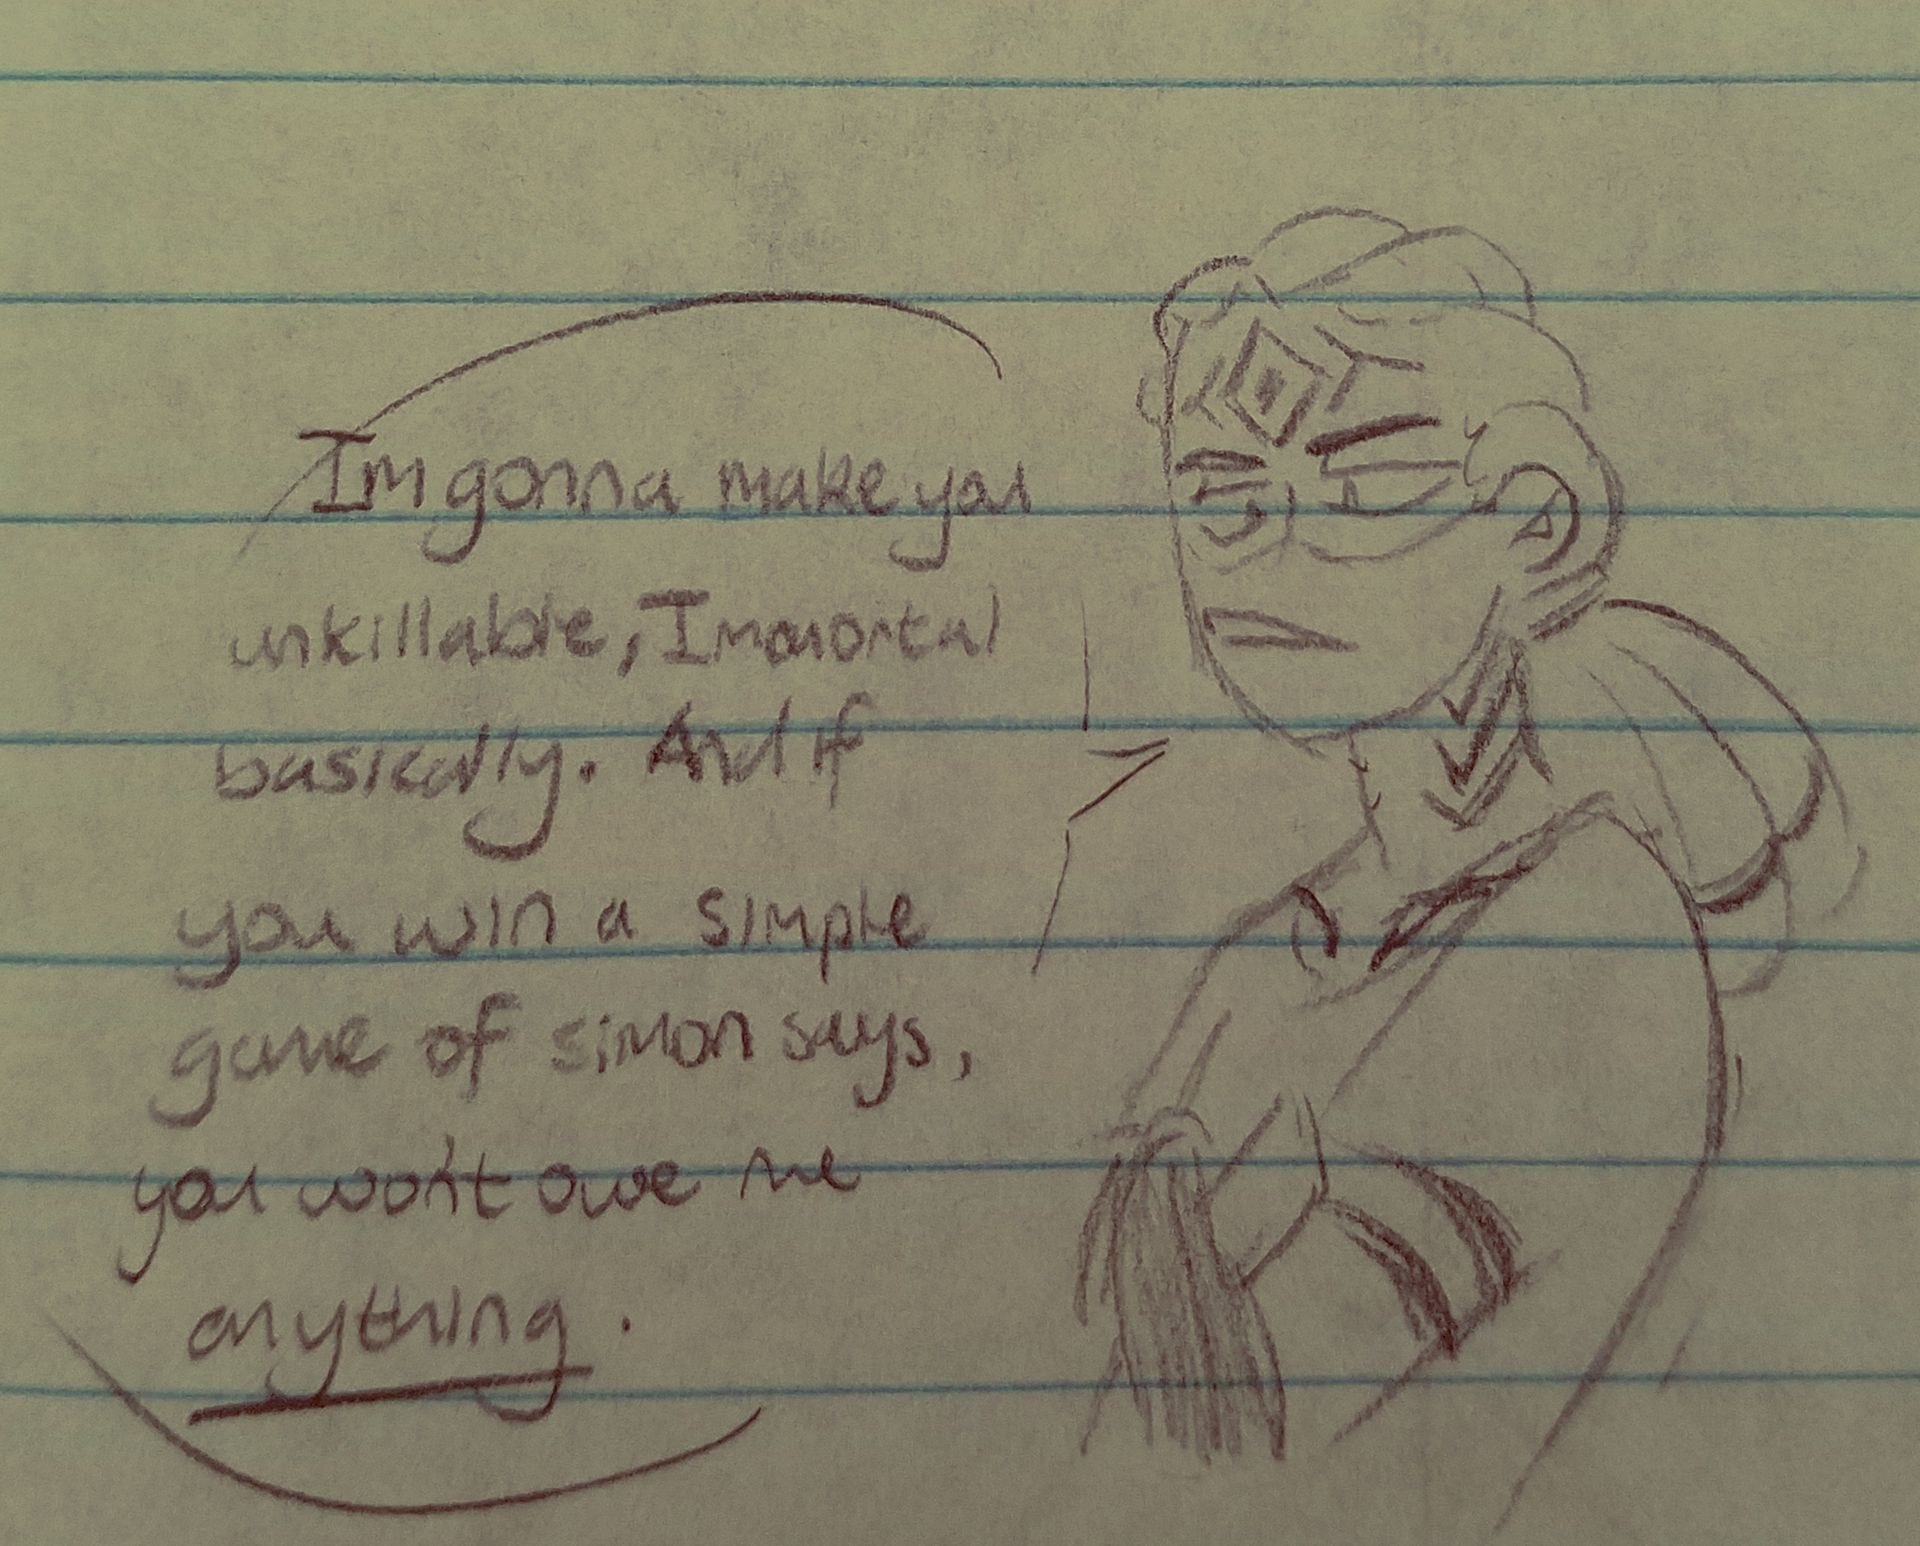 Im gonna make you
unkillable, Immortal
basically. And if
you win a simple
game of simon says,
you won't owe me
anything.